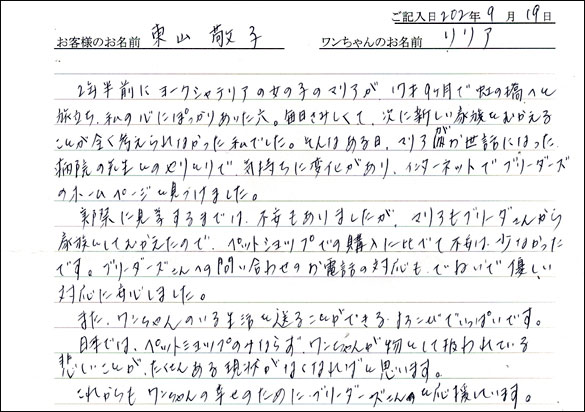 ご記入日 202年 9月 19日
お客様のお名前 東山 敬子 ワンちゃんのお名前 リリア
2年半前にヨークシャテリアの女の子のマリアが、17才9ヶ月で虹の橋へと
旅立ち、私の心にぽっかりあいた穴。毎日さみしくて、次に新しい家族をむかえる
ことが全く考えられなかった私でした。そんなある日、マリアが世話になった
病院の先生とのやりとりで、気持ちに変化があり、インターネットでブリーダーズ
のホームページを見つけました。
実際に見学するまでは、不安もありましたが、マリアもブリーダーさんから
家族としてむかえたので、ペットショップでの購入に比べて不安は少なかった
です。ブリーダーズさんへの問い合わせのお電話の対応も、ていねいで優しい
対応に安心しました。
また、ワンちゃんのいる生活を送ることができるよろこびでいっぱいです。
日本では、ペットショップのみならず、ワンちゃんが物として扱われている
悲しいことが、たくさんある現状がなくなればと思います。
これからもワンちゃんの幸せのために、ブリーダーズさんを応援しています。